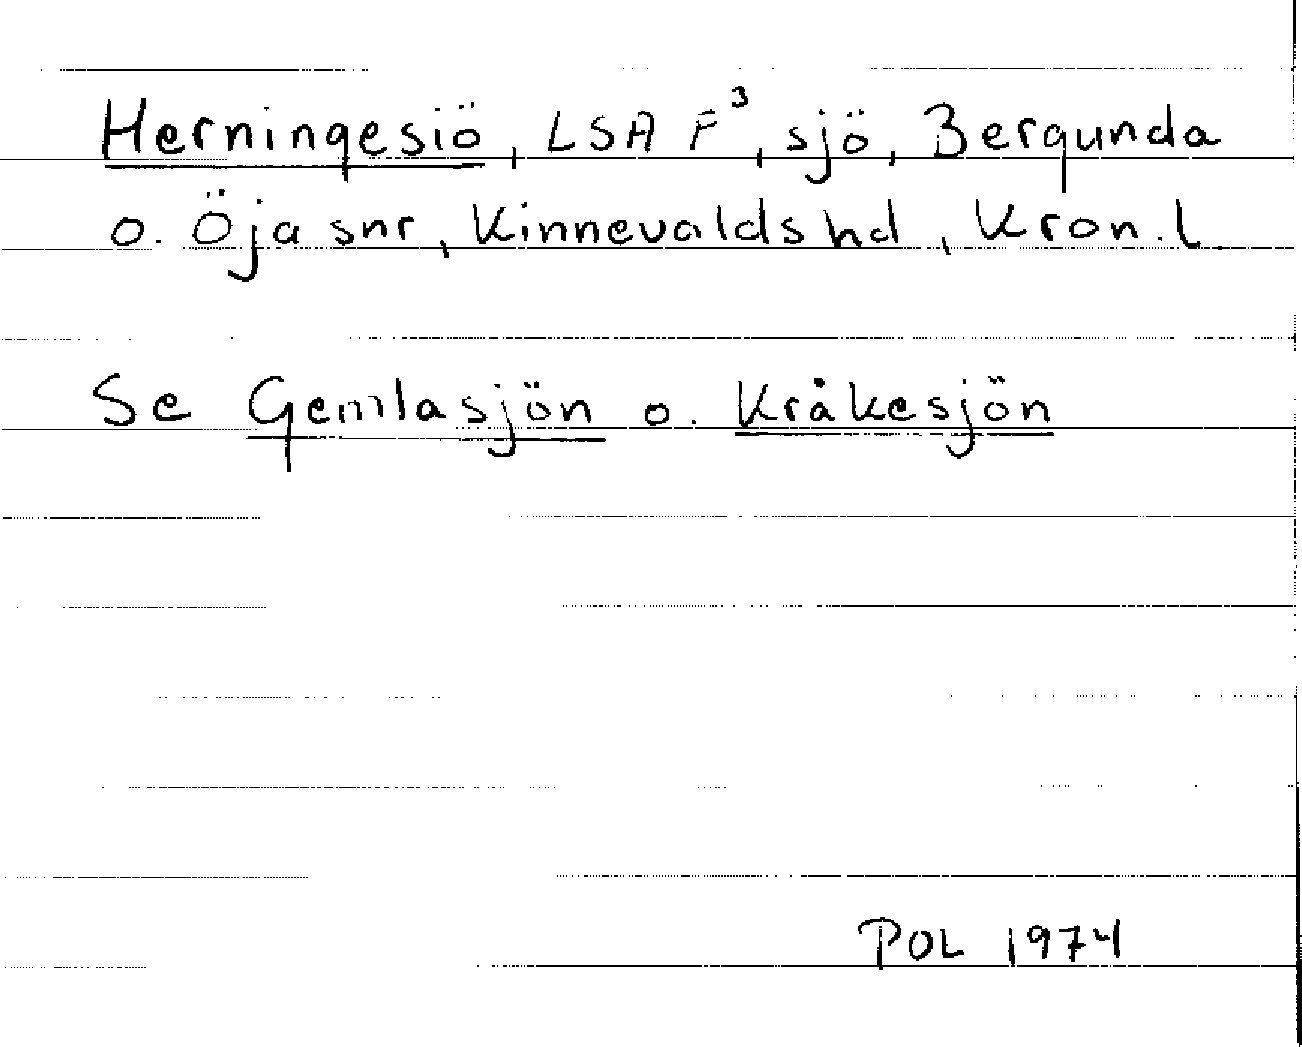 Herningesiö, LSA F³, sjö, Bergunda
o. Öja snr, Kinnevalds hd, Kron. l.
Se Gemlasjön o. Kråkesjön
POL 1974